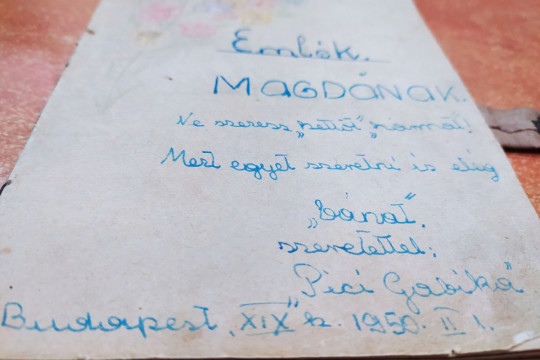 Emlék.
MAGDÁNAK.
Ne szeress „kettőt” „hármat”!
Mert egyet szeretni is elég
„bánat”.
szeretettel:
Pici Gabika”
Budapest, XIX” k. 1950. II 1.